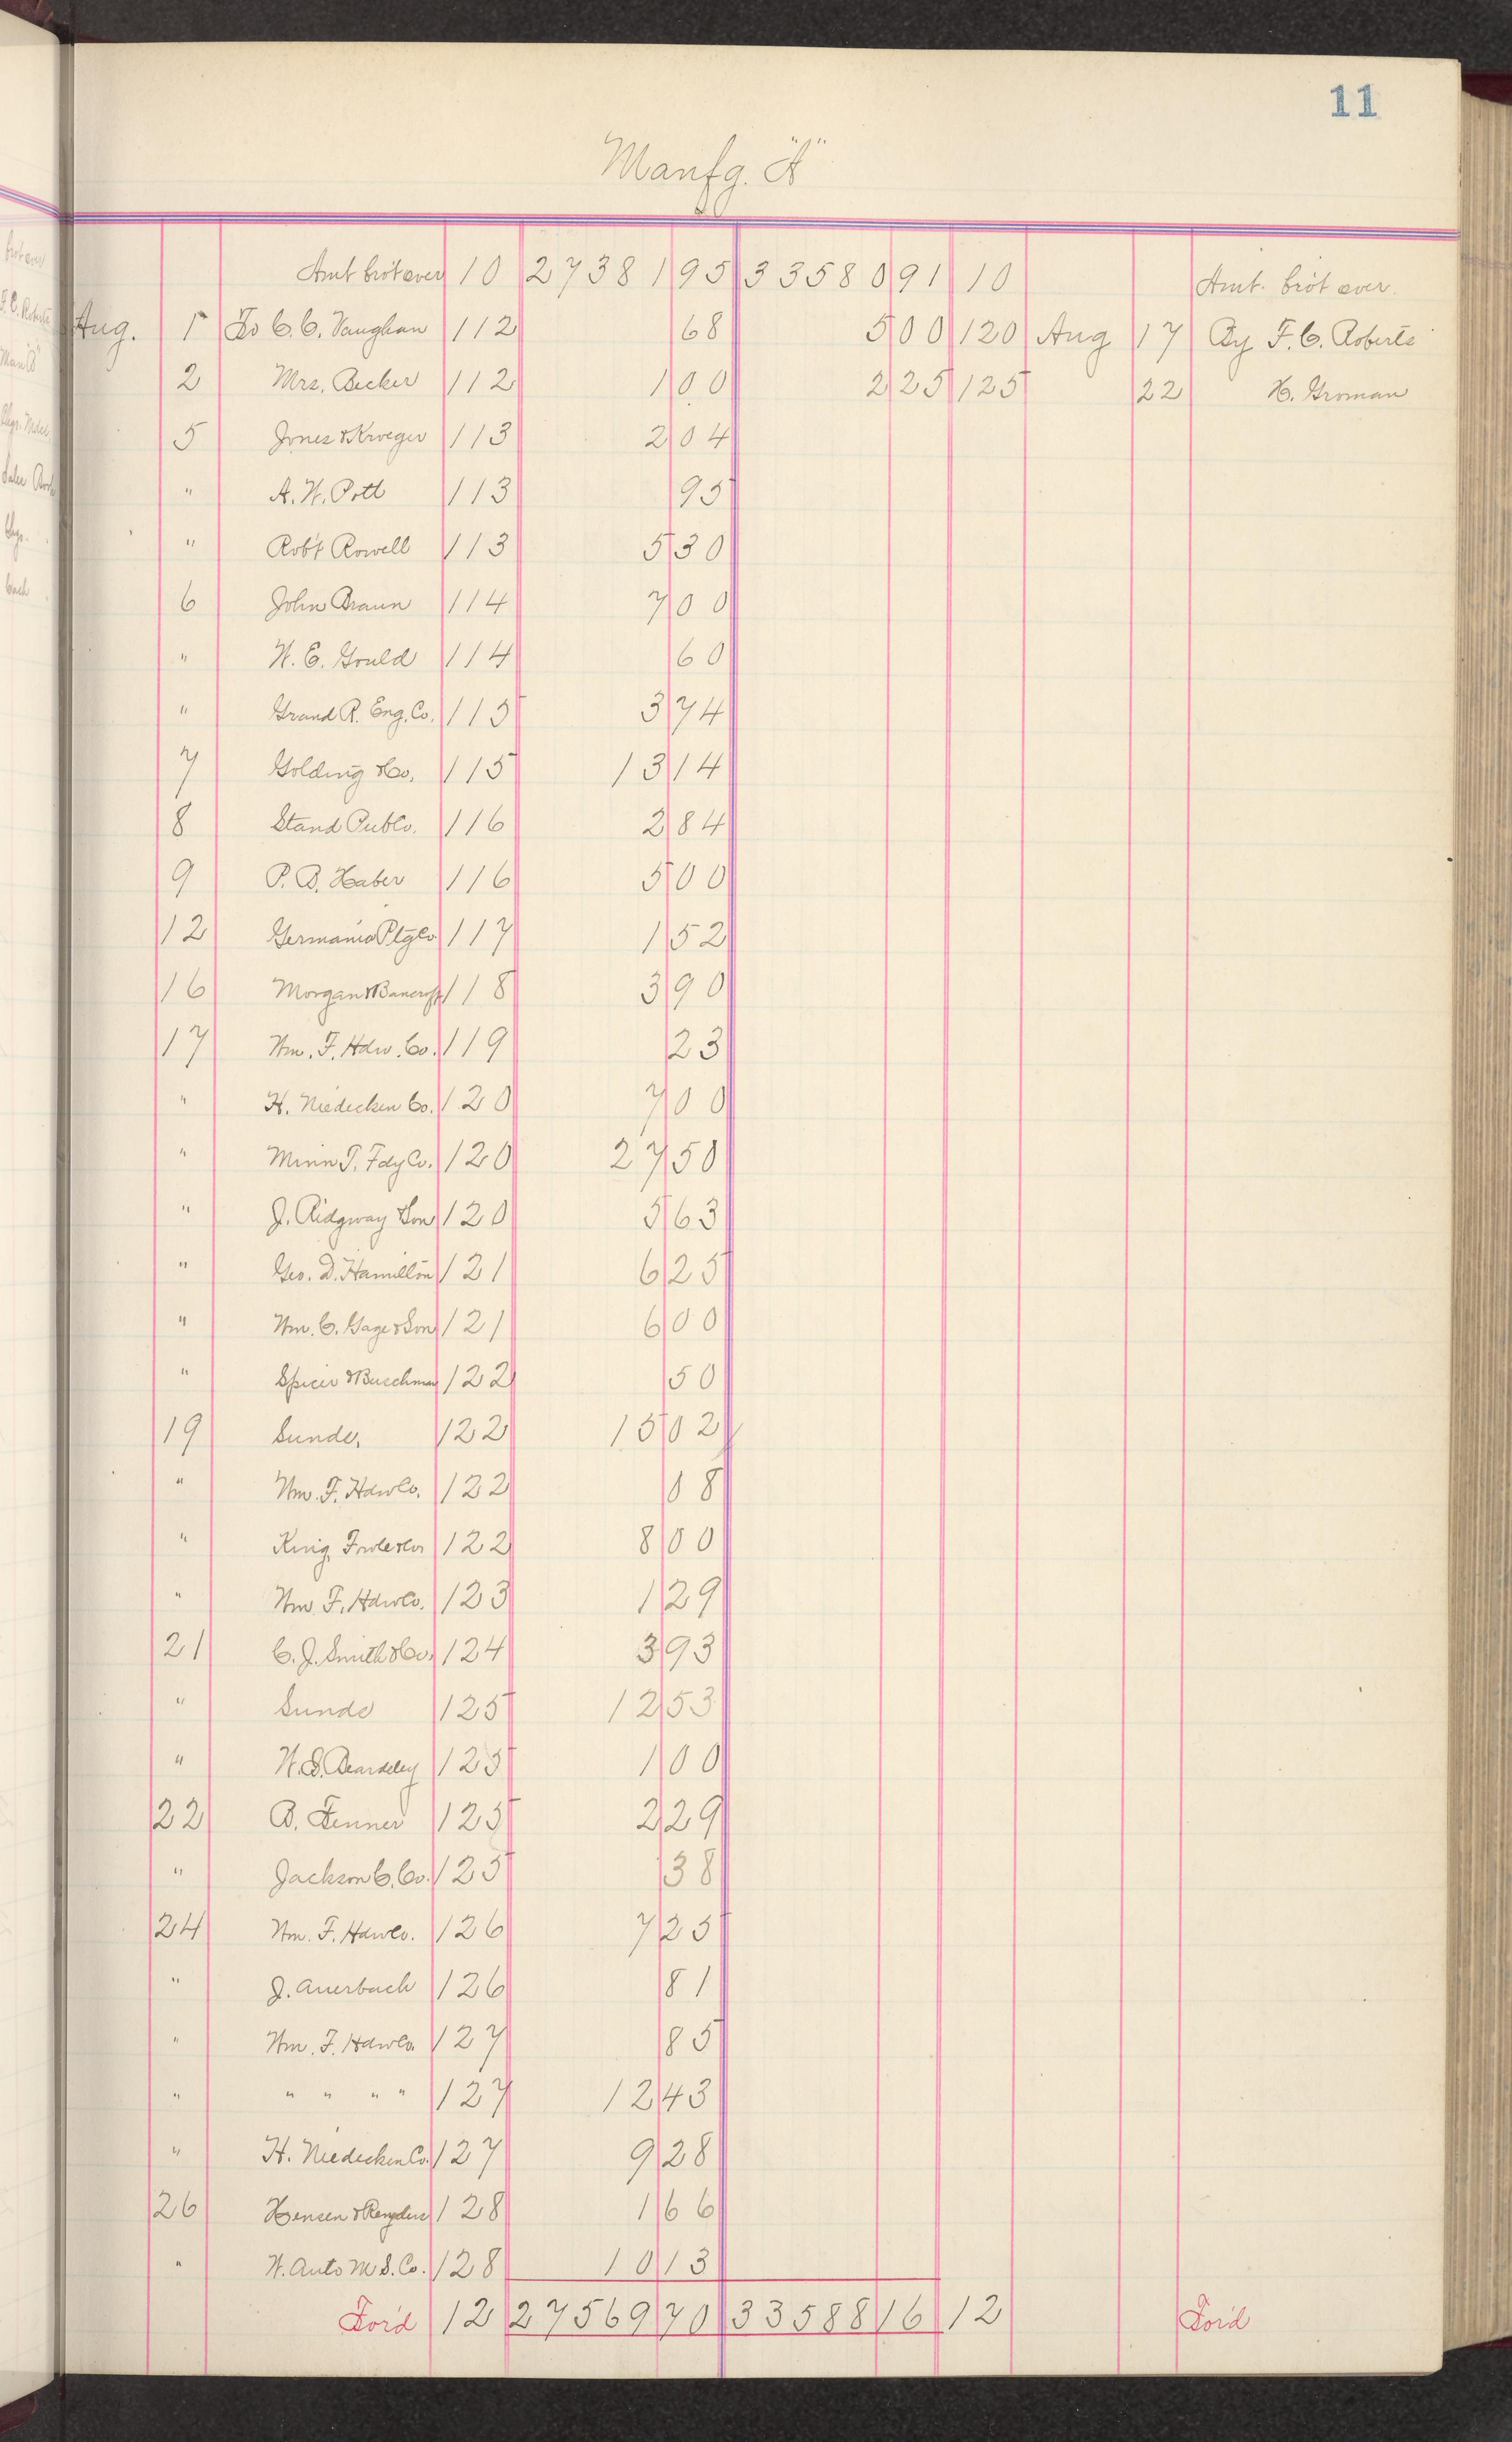 11
Manfg. "A"
Amt brot over 10 27381 95 33580 91 10 Amt. brot over.
Aug. 1 To C. C. Vaughan 112 68 5 00 120 Aug 17 By F. C. Roberts
2 Mrs. Becker 112 1 00 2 25 125 22 H. Groman
5 Jones & Kroeger 113 2 04
" A. W. Pott 113 95
" Robt Rowell 113 5 30
6 John Braun 114 7 00
" W. E. Gould 114 60
" Grand R. Eng. Co. 115 3 74
7 Golding & Co. 115 13 14
8 Stand Pub Co. 116 2 84
9 P. B. Haber 116 5 00
12 Germania Ptg Co 117 1 52
16 Morgan & Bancroft 118 3 90
17 Wm. F. Hdw. Co. 119 23
" H. Niedecken Co. 120 7 00
" Minn T. Fdy Co. 120 27 50
" J. Ridgway Son 120 5 63
" Geo. D. Hamilton 121 6 25
" Wm. C. Gage & Son 121 6 00
" Spicer & Buschman 122 50
19 Sunde, 122 15 02
" Wm. F. Hdw Co. 122 08
" King, Fowle & Co 122 8 00
" Wm F. Hdw Co. 123 1 29
21 C. J. Smith & Co. 124 3 93
" Sunde 125 12 53
" W. S. Beardsley 125 1 00
22 B. Fenner 125 2 29
" Jackson C. Co. 125 38
24 Wm. F. Hdw Co. 126 7 25
" J. Auerbach 126 81
" Wm. F. Hdw Co. 127 85
" " " " " 127 12 43
" H. Niedecken Co. 127 9 28
26 Hensen & 128 1 66
" W. Auto M. S. Co. 128 10 13
For'd 12 27569 70 33588 16 12 For'd